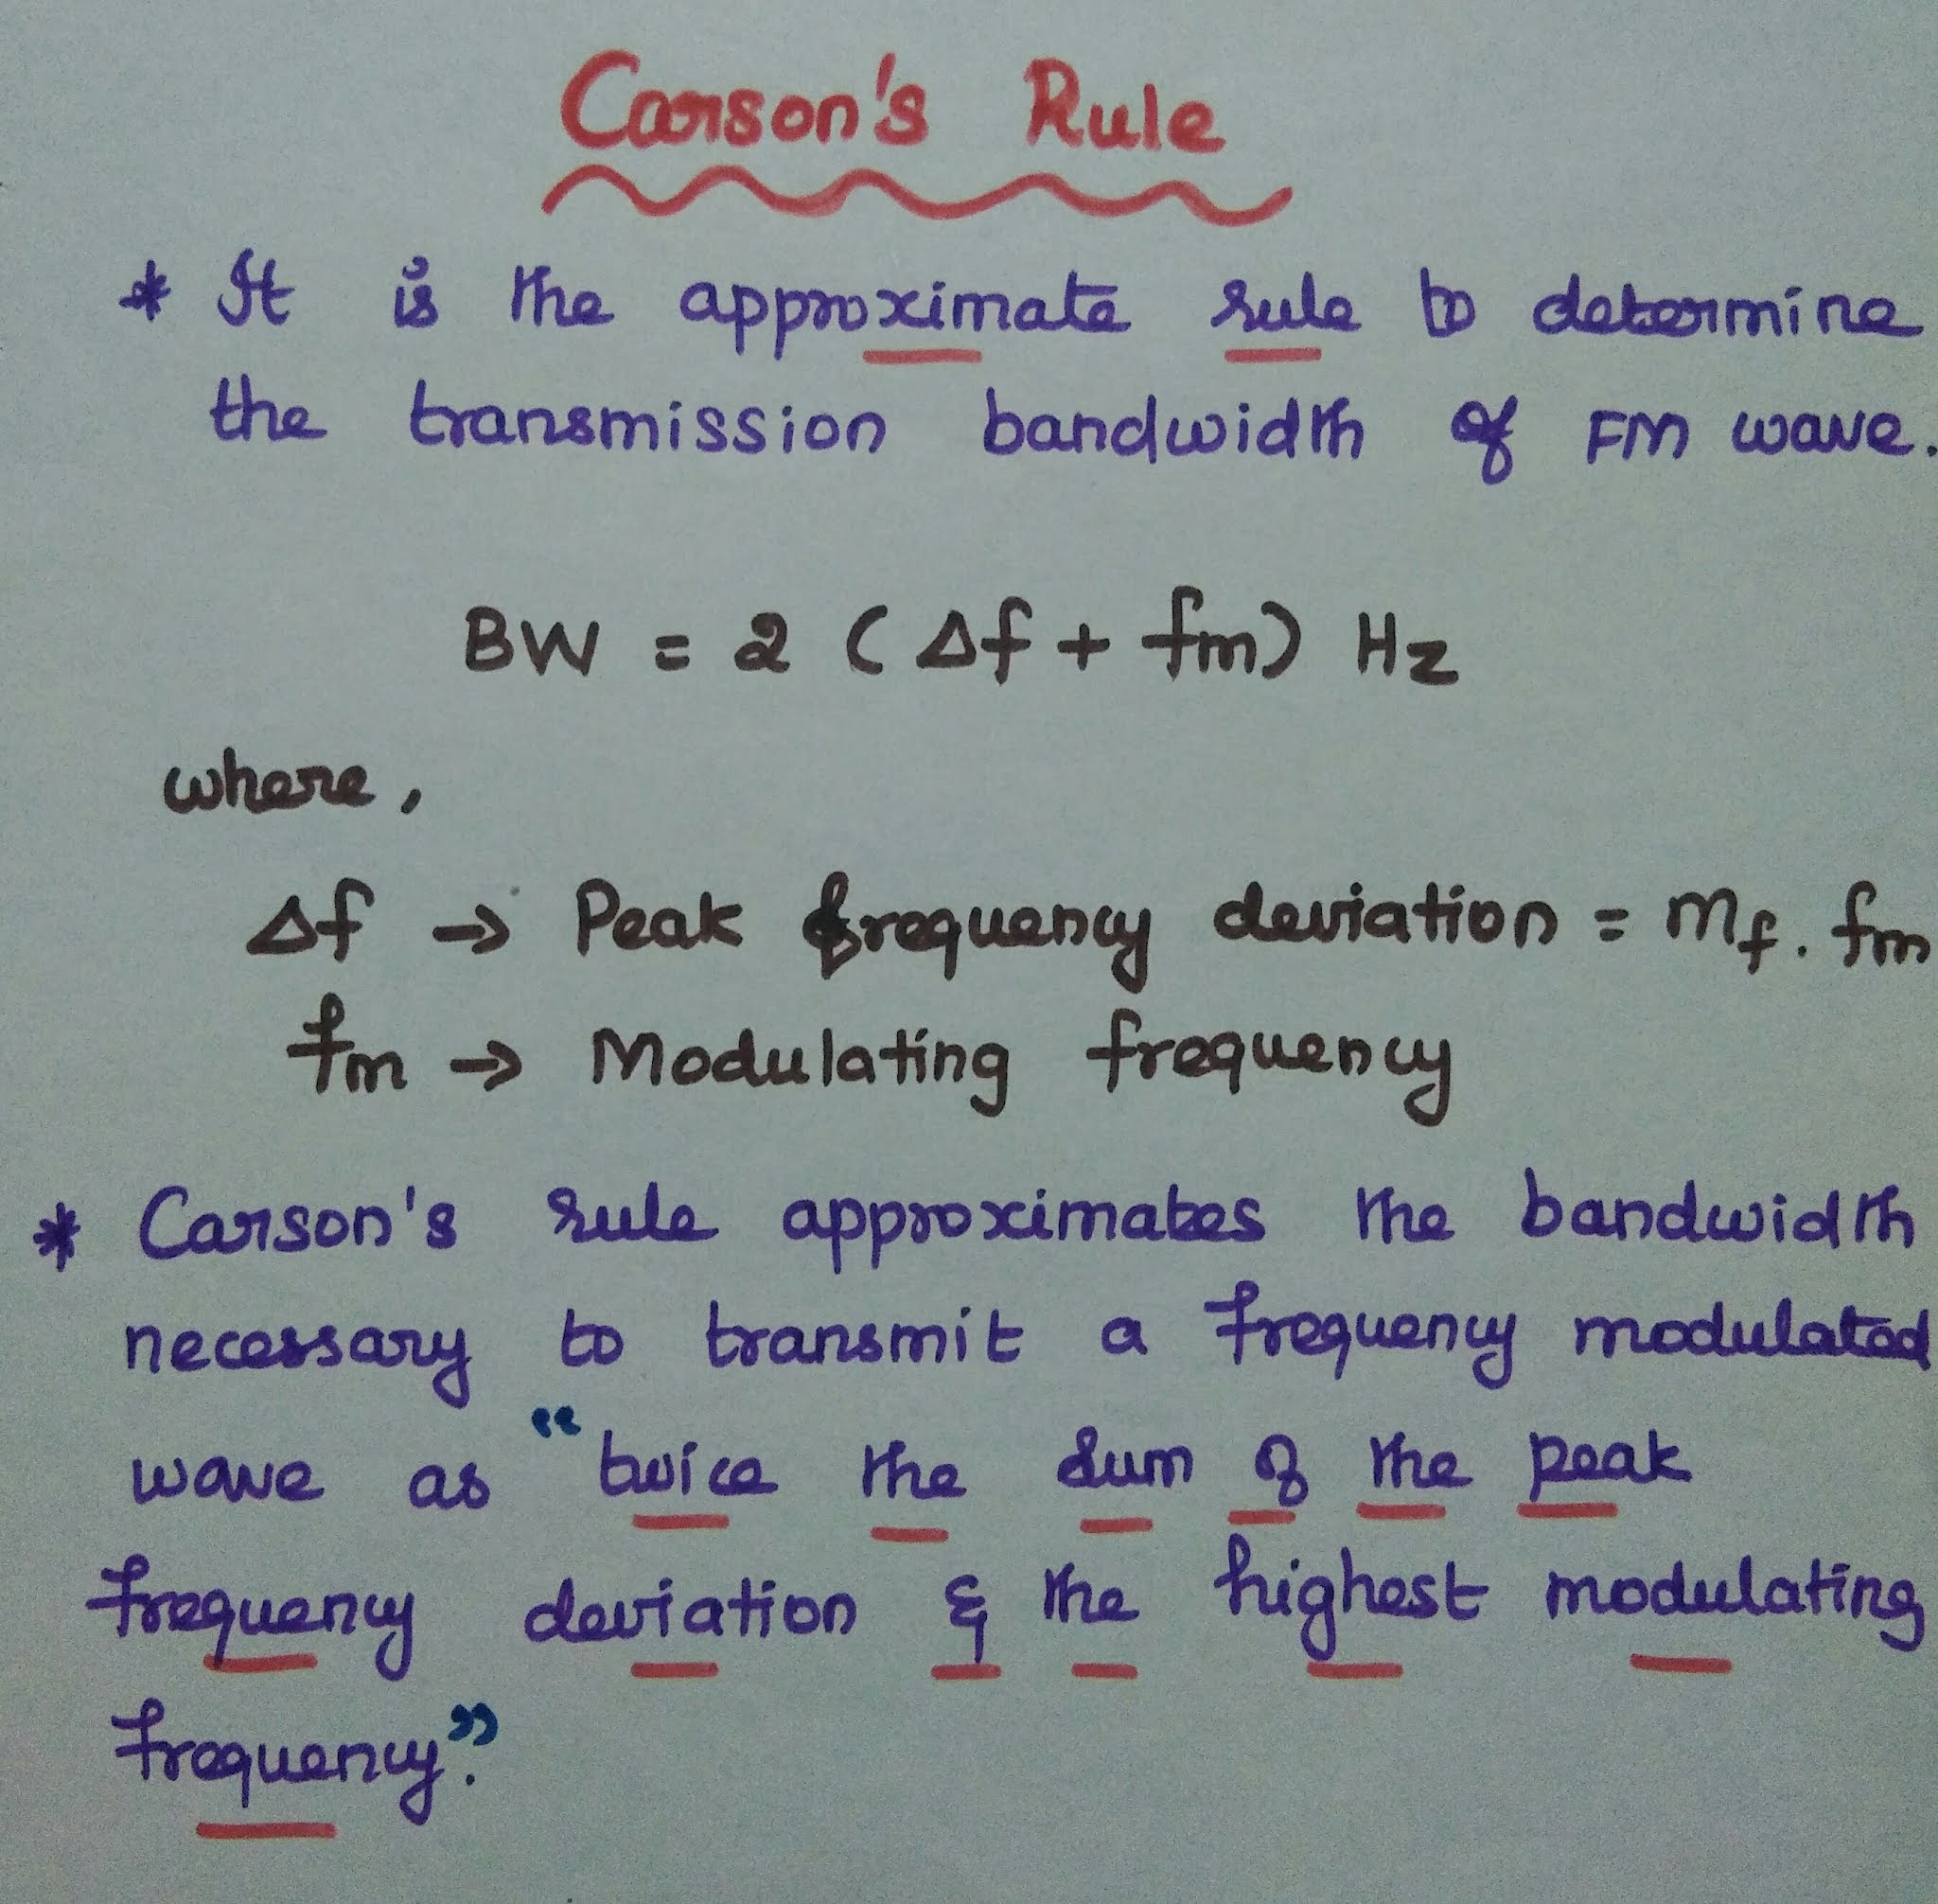 Carson's Rule
* It is the approximate rule to determine
the transmission bandwidth of FM wave.
BW = 2 (Δf + fm) Hz
where,
Δf → Peak frequency deviation = mf . fm
fm → Modulating frequency
* Carson's rule approximates the bandwidth
necessary to transmit a frequency modulated
wave as “twice the sum of the peak
frequency deviation & the highest modulating
frequency.”